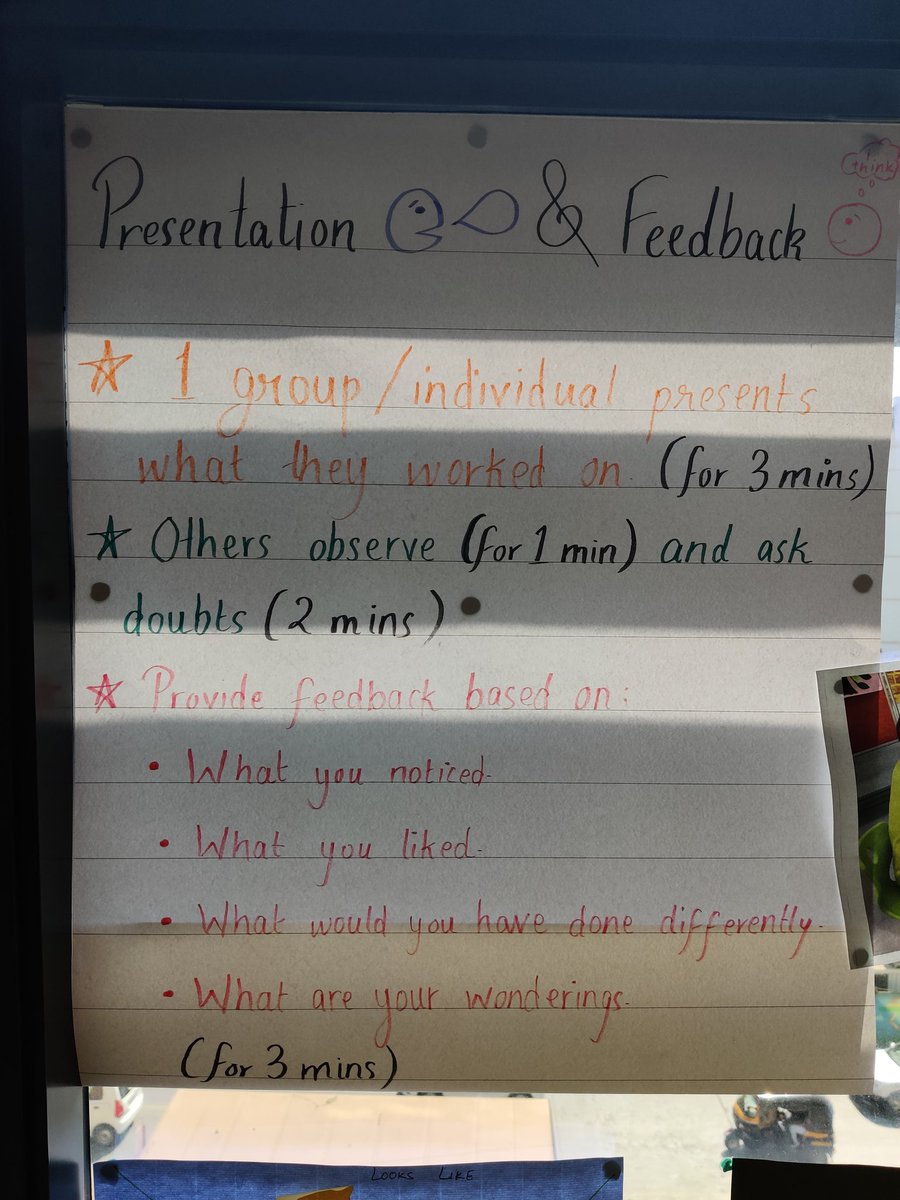 Presentation & Feedback
think
☆ 1 group/individual presents
what they worked on. (for 3 mins)
☆ Others observe (for 1 min) and ask
doubts (2 mins)
☆ Provide feedback based on:
• What you noticed.
• What you liked.
• What would you have done differently.
• What are your wonderings.
(for 3 mins)
LOOKS LIKE